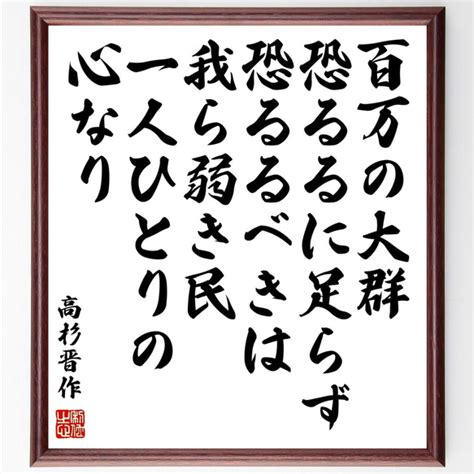 百万の大群
恐るるに足らず
恐るるべきは
我ら弱き民
一人ひとりの
心なり
高杉晋作